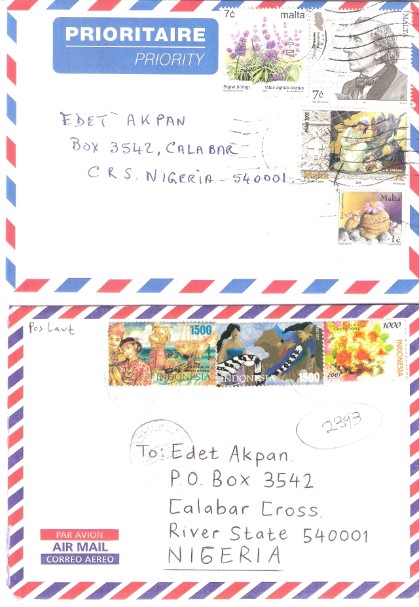 PRIORITAIRE
PRIORITY
7c malta
7c
MALTA
Malta
Malta
1c
EDET AKPAN
BOX 3542, CALABAR
CRS. NIGERIA - 540001.
Pos Laut
1500
INDONESIA
INDONESIA
1500
1000
2001
INDONESIA
2393
To: Edet Akpan.
P.O. Box 3542
Calabar Cross.
River State 540001
NIGERIA
PAR AVION
AIR MAIL
CORREO AEREO